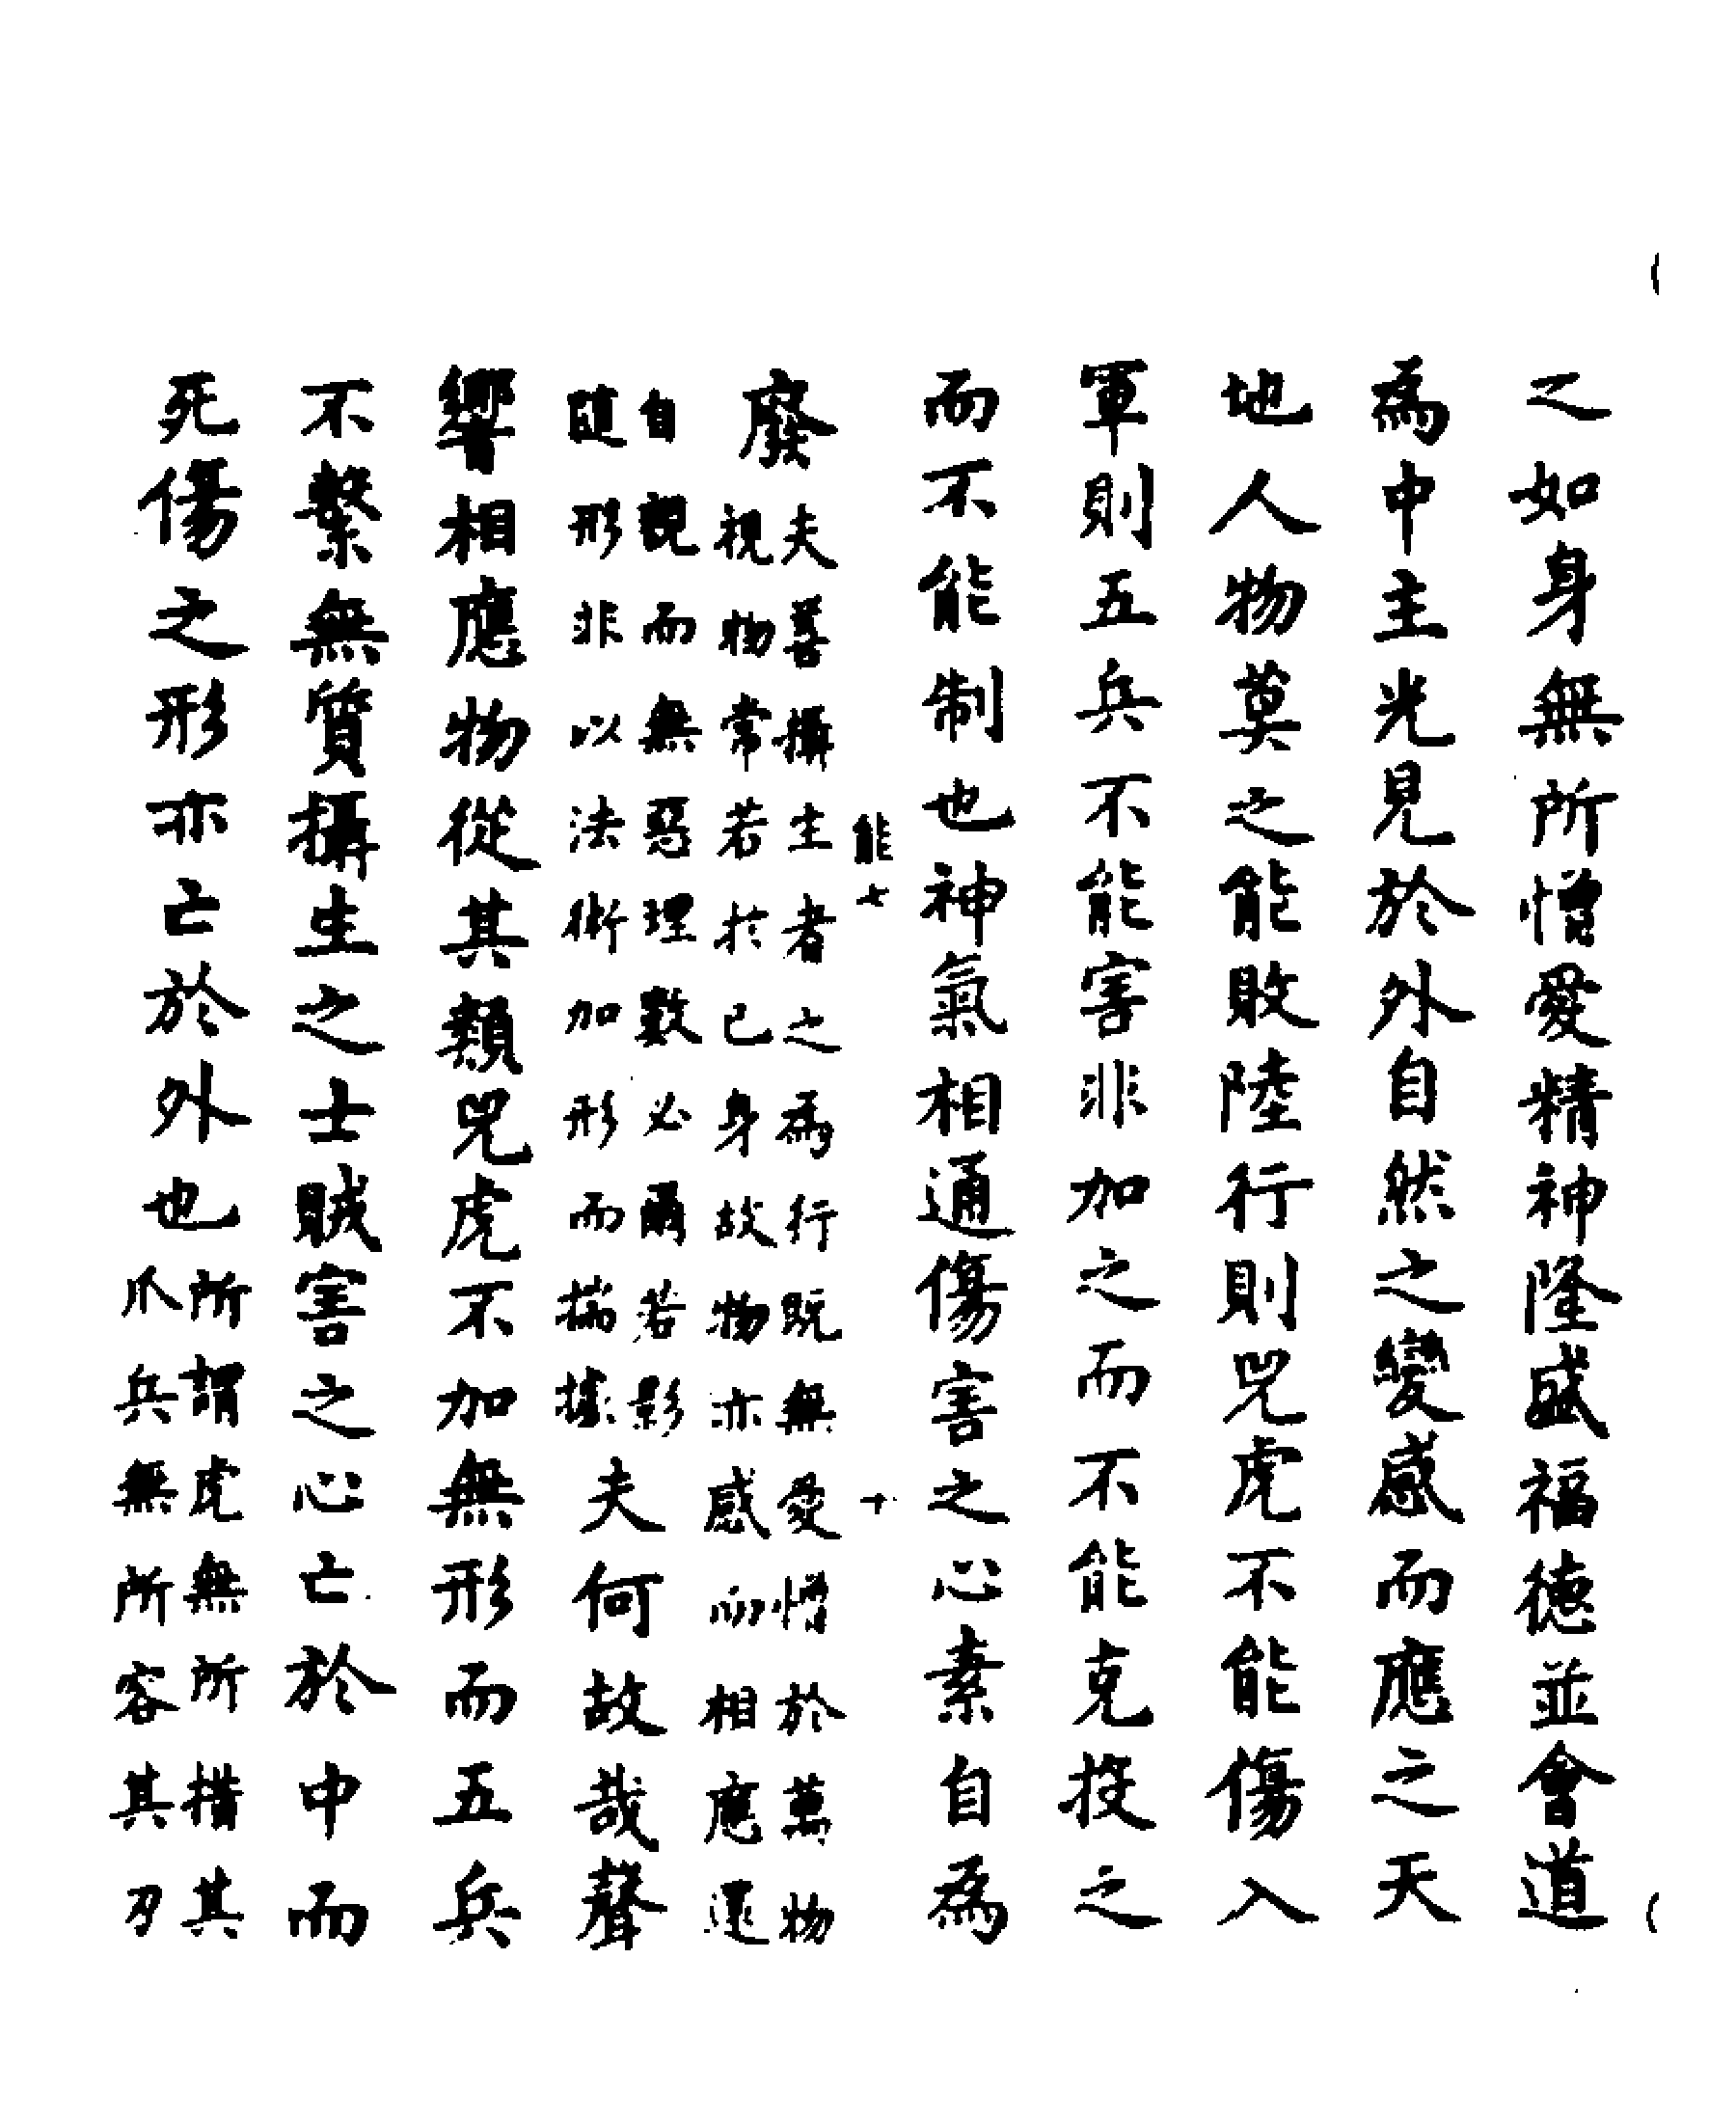 之如身無所憎愛精神隆盛福德並會道
為中主光見於外自然之變感而應之天
地人物莫之能敗陸行則兕虎不能傷入
軍則五兵不能害非加之而不能克投之
而不能制也神氣相通傷害之心素自為
能七
十
廢
夫善攝生者之為行既無愛憎於萬物
視物常若於已身故物亦感而相應還
自親而無惡理數必爾若影
隨形非以法術加形而揣據
夫何故哉聲
響相應物從其類兕虎不加無形而五兵
不繫無質攝生之士賊害之心亡於中而
死傷之形亦亡於外也
所謂虎無所措其
爪兵無所容其刃